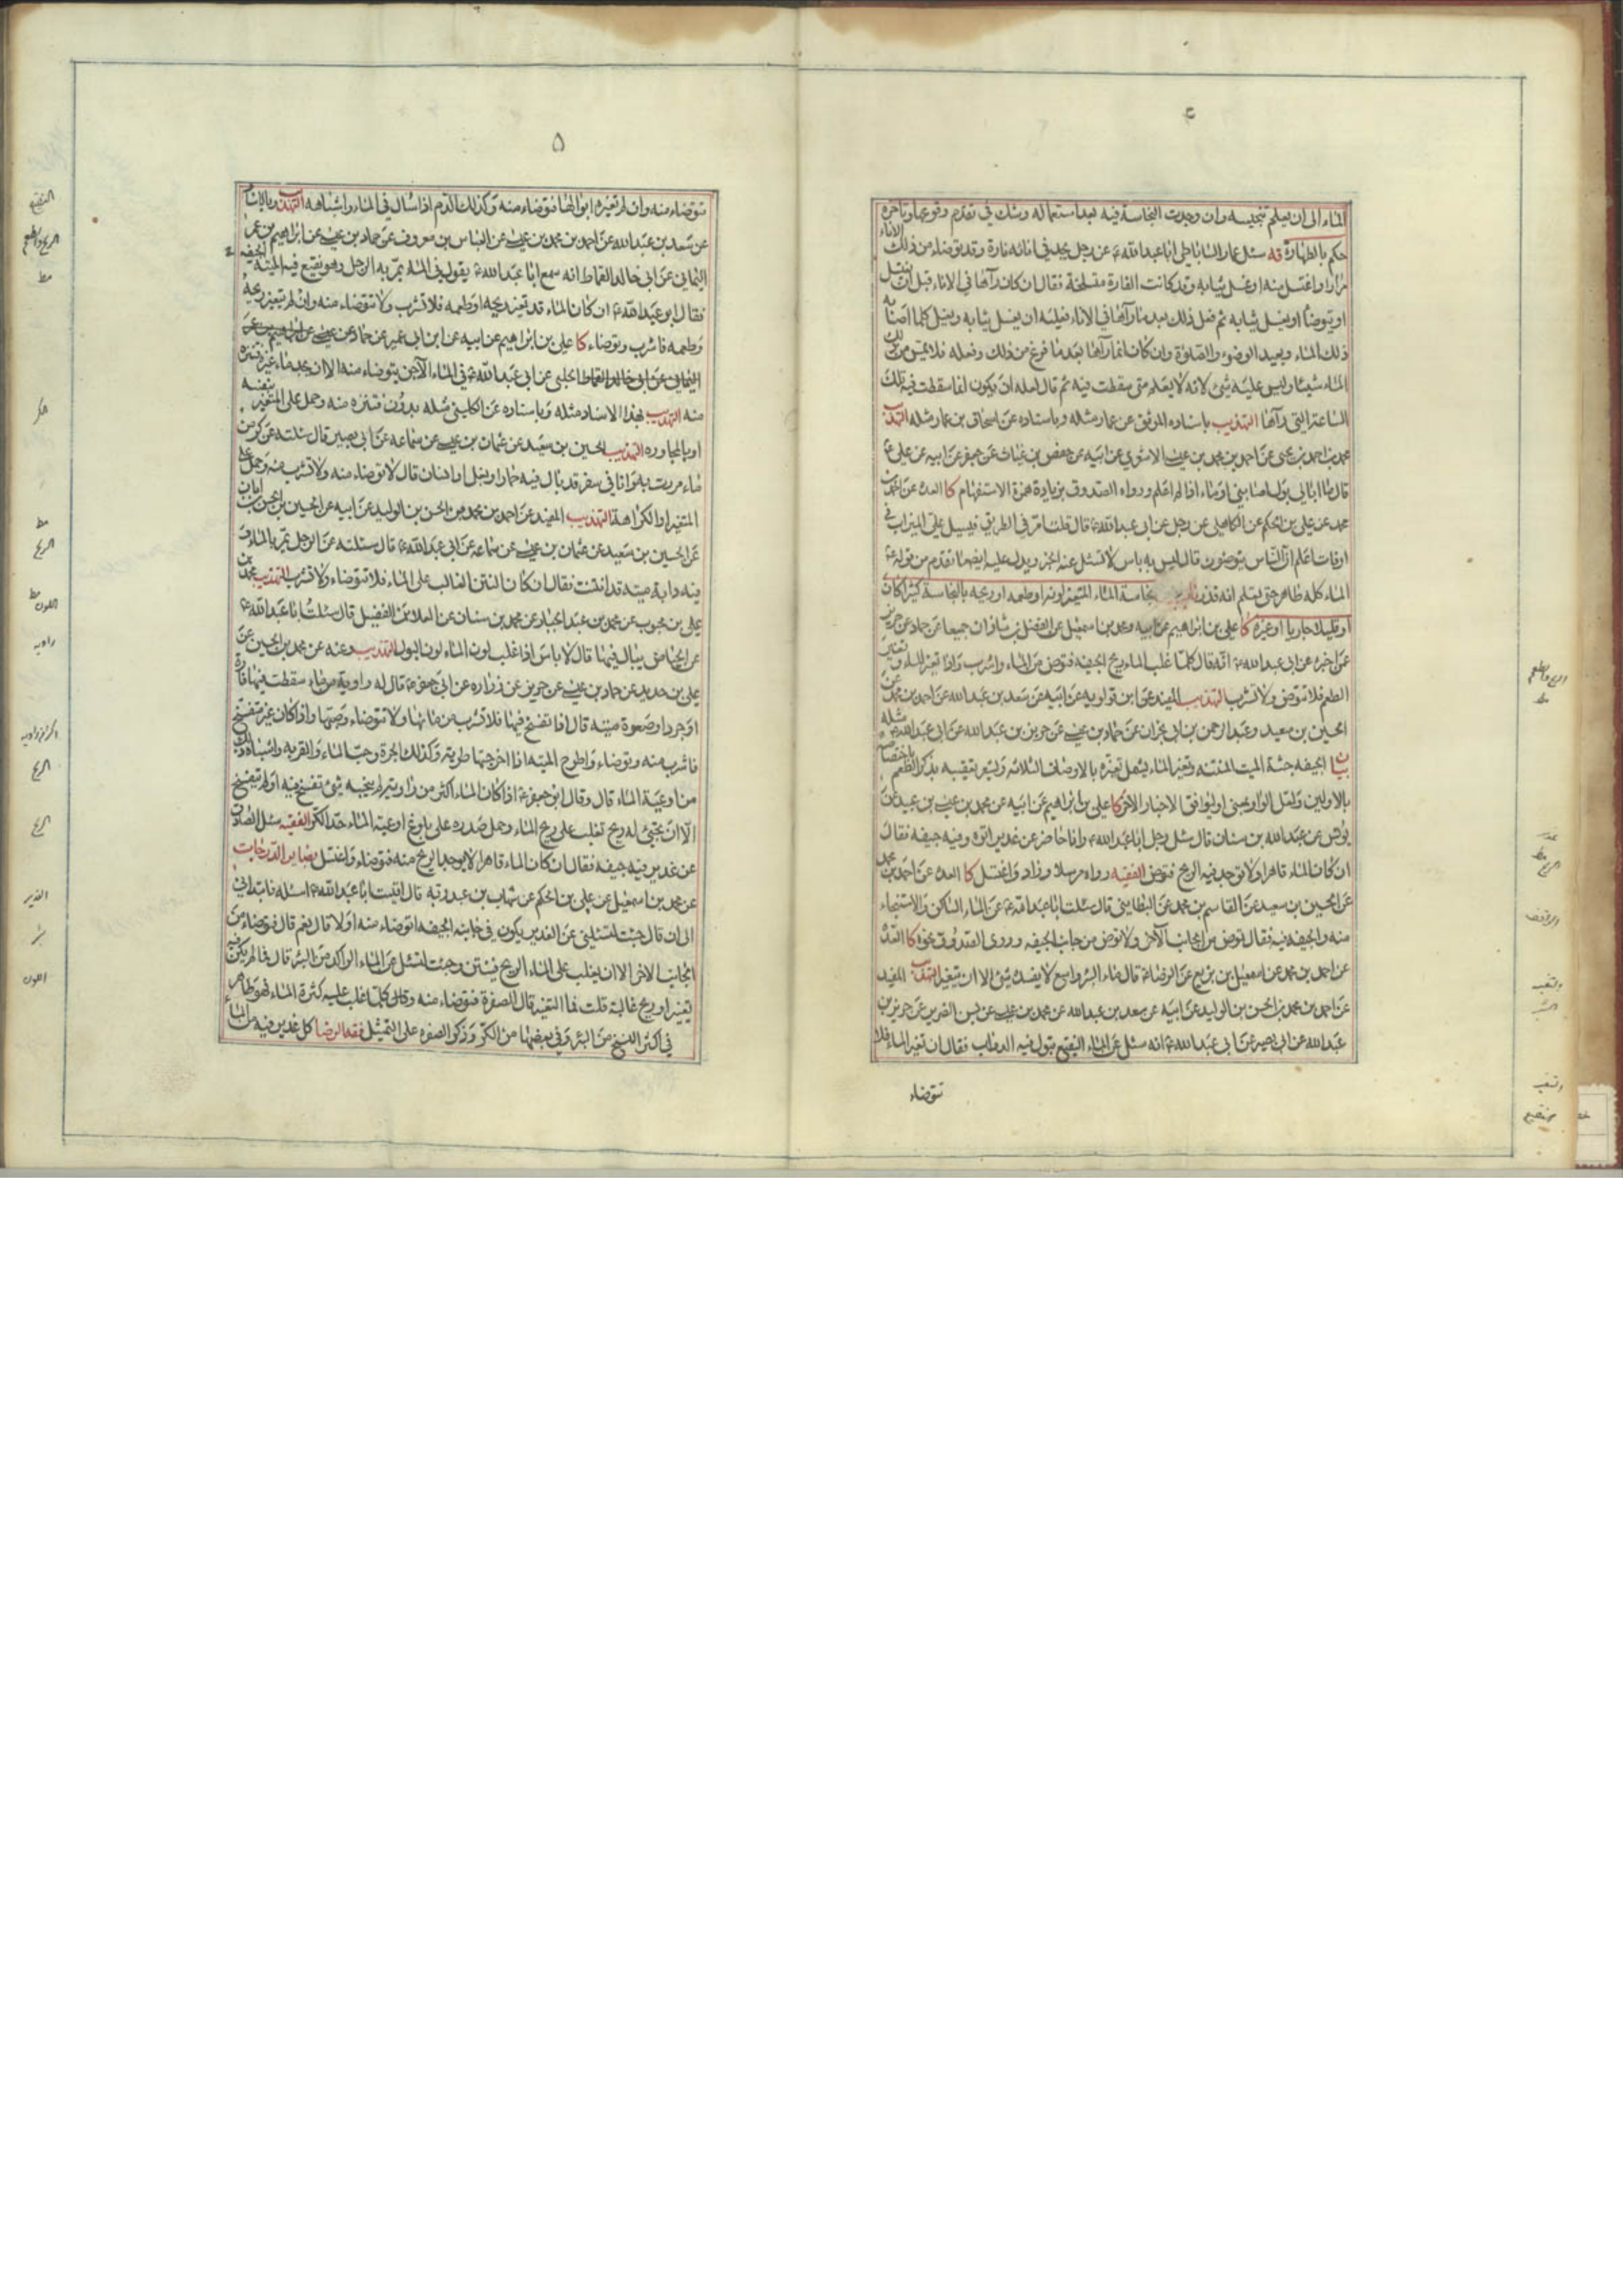 ٤
الماء الى ان يعلم تنجيسه وان وجدت النجاسة فيه بعد استعماله وشك في تقدم وقوعها وتاخره
حكم بالطهارة قه سئل عمار الساباطي ابا عبد الله ع عن رجل يجد في انائه فارة وقد توضاء من ذلك الاناء
مرارا واغتسل منه او غسل ثيابه وقد كانت الفارة متسلخة فقال ان كان رآها في الاناء قبل ان يغتسل
او يتوضأ او يغسل ثيابه ثم فعل ذلك بعد ما رآها في الاناء فعليه ان يغسل ثيابه ويغسل كلما اصابه
ذلك الماء ويعيد الوضوء والصلوة وان كان انما رآها بعد ما فرغ من ذلك وفعله فلا يمس من ذلك
الماء شيئا وليس عليه شئ لانه لا يعلم متى سقطت فيه ثم قال لعله ان يكون انما سقطت فيه تلك
الساعة التي رآها التهذيب باسناده الموثق عن عمار مثله وباسناده عن اسحاق بن عمار مثله التهذيب
محمد بن احمد بن يحيى عن احمد بن محمد بن عيسى الاشعري عن ابيه عن حفص بن غياث عن جعفر عن ابيه عن علي ع
قال ما ابالي بول اصابني او ماء اذا لم اعلم ورواه الصدوق بزيادة همزة الاستفهام كا العدة عن احمد بن
محمد عن علي بن الحكم عن الكاهلي عن رجل عن ابي عبد الله ع قال قلت امر في الطريق فيسيل علي الميزاب في
اوقات اعلم ان الناس يتوضؤن قال ليس به باس لا تسئل عنه الخبر ويدل عليه ايضا ما تقدم من قوله ع
الماء كله طاهر حتى يعلم انه قذر نجاسة الماء المتغير لونه او طعمه او ريحه بالنجاسة كثيرا كان
او قليلا جاريا او غيره كا علي بن ابراهيم عن ابيه ومحمد بن اسمعيل عن الفضل بن شاذان جميعا عن حماد عن حريز
عن اخبره عن ابي عبد الله ع انه قال كلما غلب الماء ريح الجيفة فتوض من الماء واشرب واذا تغير الماء وتغير
الطعم فلا توض ولا تشرب التهذيب المفيد عن ابن قولويه عن ابيه عن سعد بن عبد الله عن احمد بن محمد عن
الحسين بن سعيد وعبد الرحمن بن ابي نجران عن حماد بن عيسى عن حريز بن عبد الله عن ابي عبد الله ع مثله
بيان الجيفه جثة الميت المنتنه وتغير الماء يشمل تغيره بالاوصاف الثلاثه
بالاولين ولعل الواو بمعنى او ليوافق الاخبار الاخر كا علي بن ابراهيم عن ابيه عن محمد بن عيسى بن عبيد عن
يونس عن عبد الله بن سنان قال سئل رجل ابا عبد الله ع وانا حاضر عن غدير اتوه وفيه جيفه فقال
ان كان الماء قاهرا ولا توجد فيه الريح فتوض الفقيه رواه مرسلا وزاد واغتسل كا العدة عن احمد بن محمد
عن الحسين بن سعيد عن القاسم بن محمد عن البطايني قال سئلت ابا عبد الله ع عن الماء الساكن والاستنجاء
منه والجيفه فيه فقال توض من الجانب الآخر ولا توض من جانب الجيفه وروى الصدوق نحوه كا العدة
عن احمد بن محمد عن اسمعيل بن بزيع عن الرضا ع قال ماء البئر واسع لا يفسده شئ الا ان يتغير التهذيب المفيد
عن احمد بن محمد بن الحسن بن الوليد عن ابيه عن سعد بن عبد الله عن محمد بن عيسى عن يس الضرير عن حريز بن
عبد الله عن ابي بصير عن ابي عبد الله ع انه سئل عن الماء النقيع تبول فيه الدواب فقال ان تغير الماء فلا
تتوضاء
الريح والطعم
مط
الريح
٥
تتوضاء منه وان لم تغيره ابوالها فتوضاء منه وكذلك الدم اذا سال في الماء واشباهه التهذيب وبالاسناد
عن سعد بن عبد الله عن احمد بن محمد بن عيسى عن العباس بن معروف عن حماد بن عيسى عن ابراهيم بن عمر
اليماني عن ابي خالد القماط انه سمع ابا عبد الله ع يقول في الماء يمر به الرجل وهو نقيع فيه الميتة الجيفه
فقال ابو عبد الله ع ان كان الماء قد تغير ريحه او طعمه فلا تشرب ولا تتوضاء منه وان لم يتغير ريحه
وطعمه فاشرب وتوضاء كا علي بن ابراهيم عن ابيه عن ابن ابي عمير عن حماد عن عيسى عن ابراهيم بن عمر
اليماني عن ابي خالد القماط الحلبي عن ابي عبد الله ع في الماء الآجن يتوضاء منه الا ان يجد ماء غيره فتنزه
منه التهذيب بهذا الاسناد مثله وباسناده عن الكليني مثله بدون فتنزه منه وحمل على المتغير بنفسه
او بالمجاوره التهذيب الحسين بن سعيد عن عثمان بن عيسى عن سماعه عن ابي بصير قال سئلته عن كر من
ماء مررت به وانا في سفر قد بال فيه حمار او بغل او انسان قال لا توضاء منه ولا تشرب منه وحمل على
المتغير او الكراهة التهذيب المفيد عن احمد بن محمد بن الحسن بن الوليد عن ابيه عن الحسين بن الحسن بن ابان
عن الحسين بن سعيد عن عثمان بن عيسى عن سماعه عن ابي عبد الله ع قال سئلته عن الرجل يمر بالماء و
فيه دابة ميتة قد انتنت فقال ان كان النتن الغالب على الماء فلا تتوضاء ولا تشرب التهذيب محمد بن
علي بن محبوب عن محمد بن عبد الجبار عن محمد بن سنان عن العلا بن الفضيل قال سئلت ابا عبد الله ع
عن الحياض يبال فيها قال لا باس اذا غلب لون الماء لون البول التهذيب وعنه عن محمد بن الحسين عن
علي بن حديد عن حماد بن عيسى عن حريز عن زراره عن ابي جعفر ع قال له راوية من ماء سقطت فيها فارة
او جرذ او صعوة ميتة قال اذا تفسخ فيها فلا تشرب من مائها ولا تتوضاء وصبها واذا كان غير متفسخ
فاشرب منه وتوضاء واطرح الميته اذا اخرجتها طرية وكذلك الجرة وحب الماء والقربه واشباه ذلك
من اوعية الماء قال وقال ابو جعفر ع اذا كان الماء اكثر من راوية لم ينجسه شئ تفسخ فيه او لم يتفسخ
الا ان يجئ له ريح تغلب على ريح الماء وحمل صدره على بلوغ اوعية الماء حد الكر الفقيه سئل الصادق
عن غدير فيه جيفه فقال ان كان الماء قاهرا لا يوجد الريح منه فتوضاء واغتسل بصاير الدرجات
عن محمد بن اسمعيل عن علي بن الحكم عن شهاب بن عبد ربه قال اتيت ابا عبد الله ع اسئله فابتداني
الى ان قال جئت لتسئلني عن الغدير يكون في جانبه الجيفه اتوضاء منه او لا قال نعم قال فتوضاء من
الجانب الاخر الا ان يغلب على الماء الريح فينتن وجئت لتسئل عن الماء الراكد من البئر قال فما لم يكن فيه
تغير او ريح غالبة قلت فما التغير قال الصفرة فتوضاء منه وكلما غلب عليه كثرة الماء فهو طاهر
في اكثر النسخ من البئر وفي بعضها من الكر وذكر الصفره على التمثيل فقه الرضا كل غدير فيه من الماء
النقيع
الريح والطعم
مط
الكر
مط
الريح
مط
اللون
راويه
الريح
الريح
الغدير
بئر
اللون